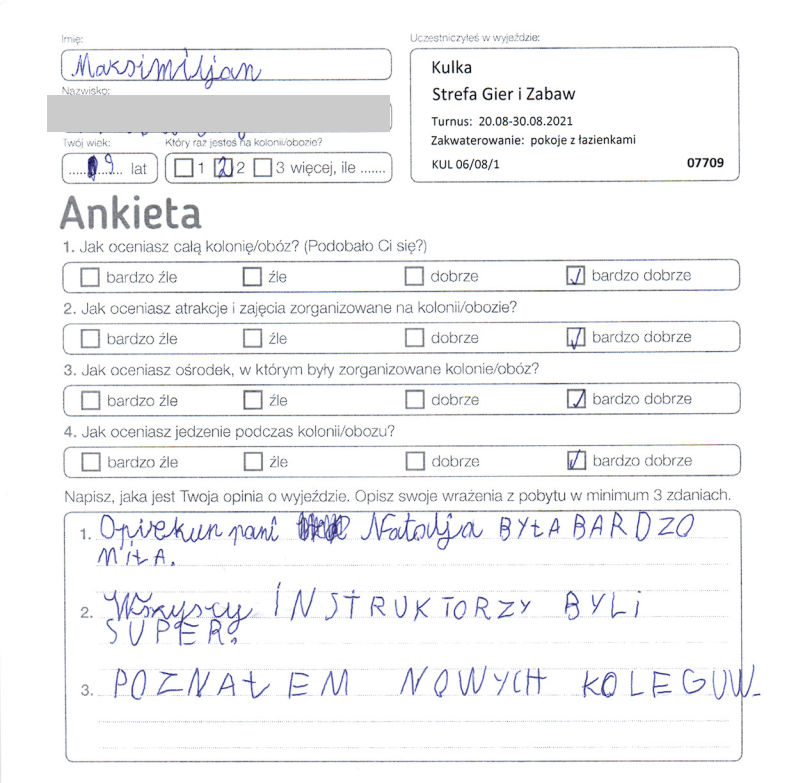 Imię:
Maksimiljan
Nazwisko:
Twój wiek:
Który raz jesteś na kolonii/obozie?
.....9.... lat
1 2 2 3 więcej, ile .......
Uczestniczyłeś w wyjeździe:
Kulka
Strefa Gier i Zabaw
Turnus: 20.08-30.08.2021
Zakwaterowanie: pokoje z łazienkami
KUL 06/08/1 07709
Ankieta
1. Jak oceniasz całą kolonię/obóz? (Podobało Ci się?)
bardzo źle źle dobrze bardzo dobrze
2. Jak oceniasz atrakcje i zajęcia zorganizowane na kolonii/obozie?
bardzo źle źle dobrze bardzo dobrze
3. Jak oceniasz ośrodek, w którym były zorganizowane kolonie/obóz?
bardzo źle źle dobrze bardzo dobrze
4. Jak oceniasz jedzenie podczas kolonii/obozu?
bardzo źle źle dobrze bardzo dobrze
Napisz, jaka jest Twoja opinia o wyjeździe. Opisz swoje wrażenia z pobytu w minimum 3 zdaniach.
1. Opiekun pani Natalja BYŁA BARDZO
MIŁA.
2. Wszyscy INSTRUKTORZY BYLI
SUPER.
3. POZNAŁEM NOWYCH KOLEGUW.